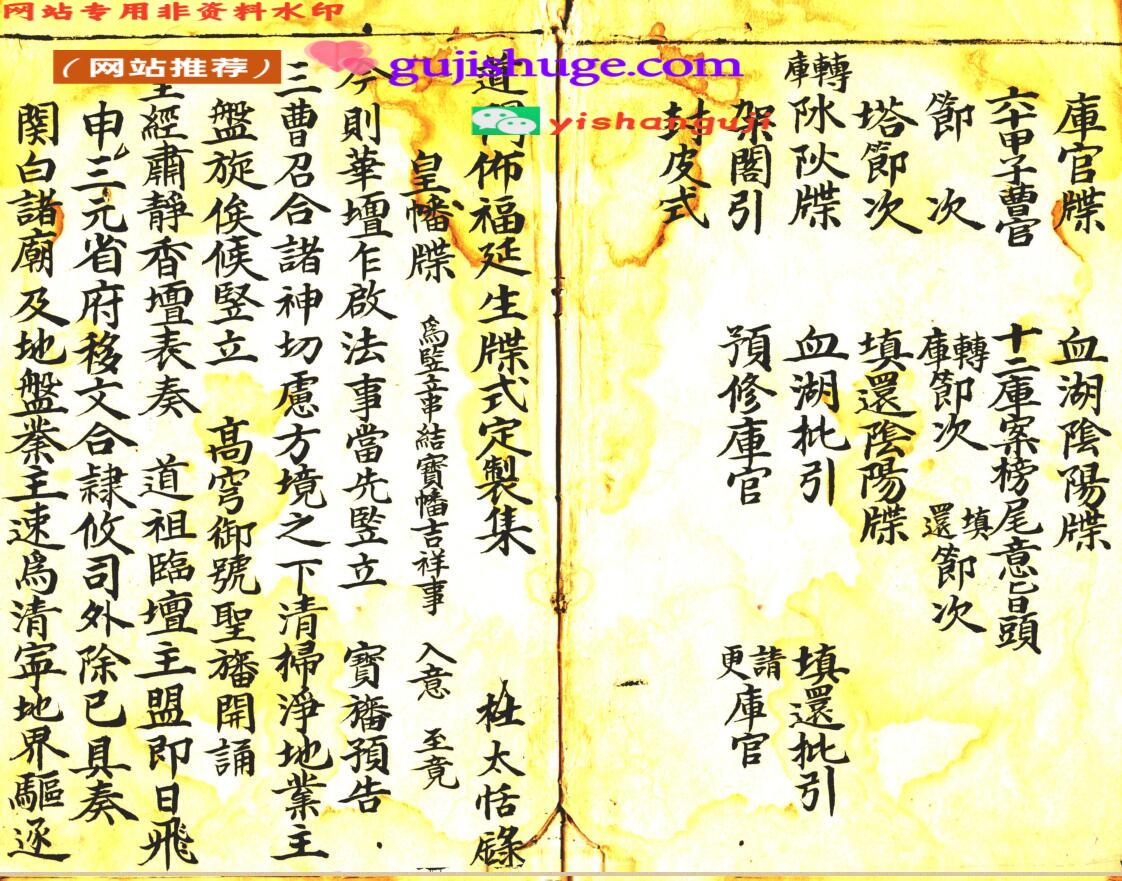 网站专用非资料水印
(网站推荐)
gujishuge.com
yishanguji
庫官牒 血湖陰陽牒
六十甲子曹官 十二庫案榜尾意旨頭
節次 轉庫節次 填還節次
塔節次 填還陰陽牒
轉庫 牒 血湖批引 填還批引
架閣引 預修庫官 請更庫官
封皮式
道 佈福延生牒式定製集 杜太恬錄
皇幡牒 為監立事結寶幡吉祥事 入意 至竟
今則華壇乍啟法事當先監立 寶旛預告
三曹召合諸神切慮方境之下清掃淨地業主
盤旋俟候竪立 高穹御號聖旛開誦
玉經肅靜香壇表奏 道祖臨壇主盟即日飛
申三元省府移文合隸攸司外除已具奏
関白諸廟及地盤業主速為清寧地界驅逐